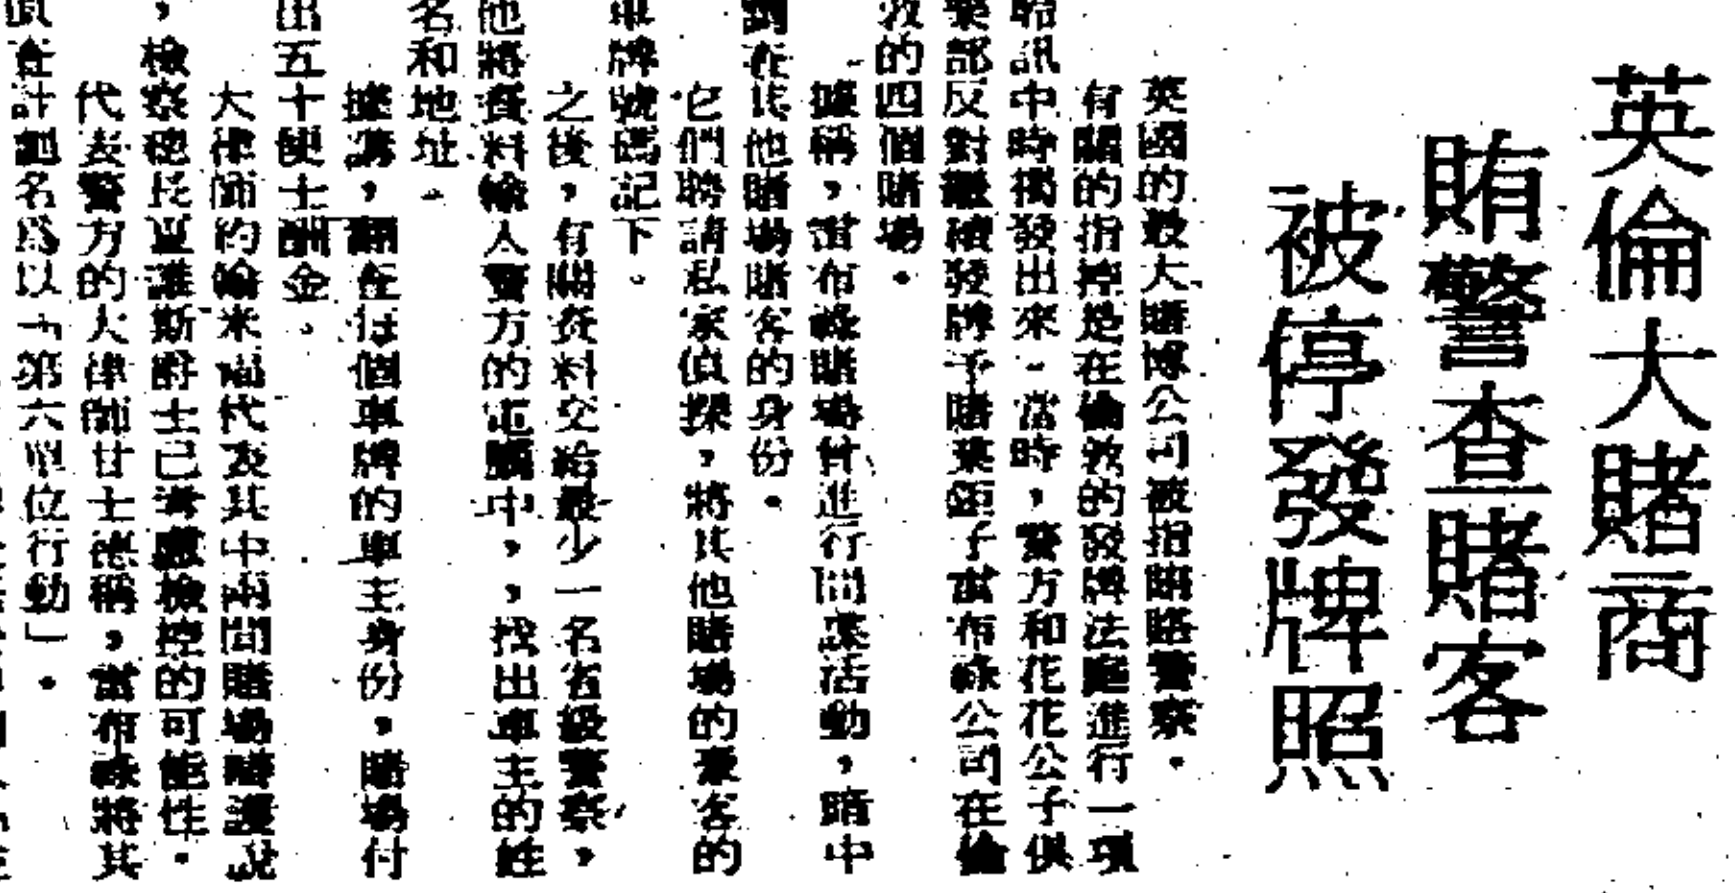 英倫大賭商
賄警查賭客
被停發牌照
英國的最大賭博公司被指賄賂警察。
有關的指控是在倫敦的發牌法庭進行一項
聆訊中時揭發出來。當時，警方和花花公子俱
樂部反對繼續發牌予賭業鉅子當布綠公司在倫
敦的四個賭場。
據稱，當布綠賭場曾進行間諜活動，暗中
調查其他賭場賭客的身份。
它們聘請私家偵探，將其他賭場的豪客的
車牌號碼記下。
之後，有關資料交給最少一名省級警察，
他將資料輸入警方的電腦中，，找出車主的姓
名和地址。
據講，翻查每個車牌的車主身份，賭場付
出五十便士酬金。
大律師約翰米爾代表其中兩間賭場時護說
，檢察總長夏維斯爵士已考慮檢控的可能性。
代表警方的大律師甘士德稱，當布綠將其
偵查計劃名爲以「第六單位行動」。